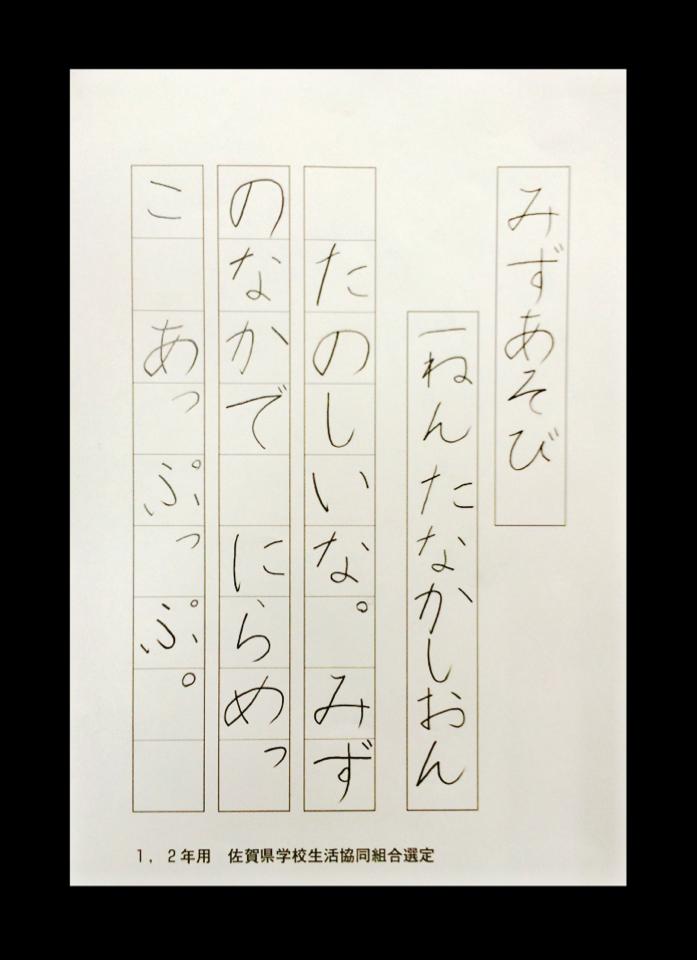 みずあそび
一ねん たなかしおん
　たのしいな。 みず
のなかで にらめっ
こ あっぷっぷ。
1，2年用　佐賀県学校生活協同組合選定